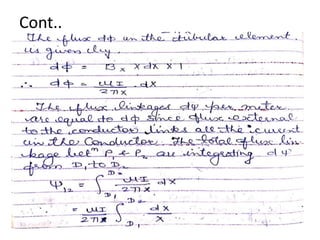 Cont..
The flux dφ in the tubular element.
is given by
dφ = Bx x dx x 1
∴ dφ = μI / 2πx . dx
The flux linkages dψ per meter
are equal to dφ since flux external
to the conductor links all the current
in the Conductor. The total flux lin-
kage betⁿ P1 & P2 are integrating dψ
from D1 to D2
Ψ12 = ∫ D1 D2 μI / 2πx dx
= μI / 2πx ∫ D1 D2 dx / x